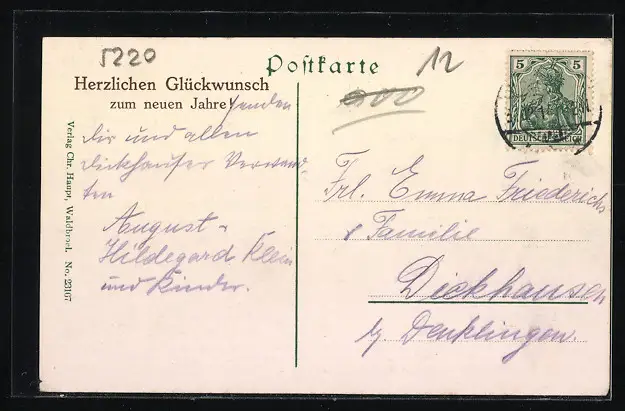 5220
Postkarte
12
Herzlichen Glückwunsch
zum neuen Jahre! senden
Dir und allen
Dickhauser Verwand-
ten
August u
Hildegard Klein
und Kinder.
Verlag Chr. Haupt, Waldbroel. No. 23167
5 5
DEUTSCHES REICH
Frl. Emma Friederichs
& Familie
Dickhausen
b/ Denklingen.